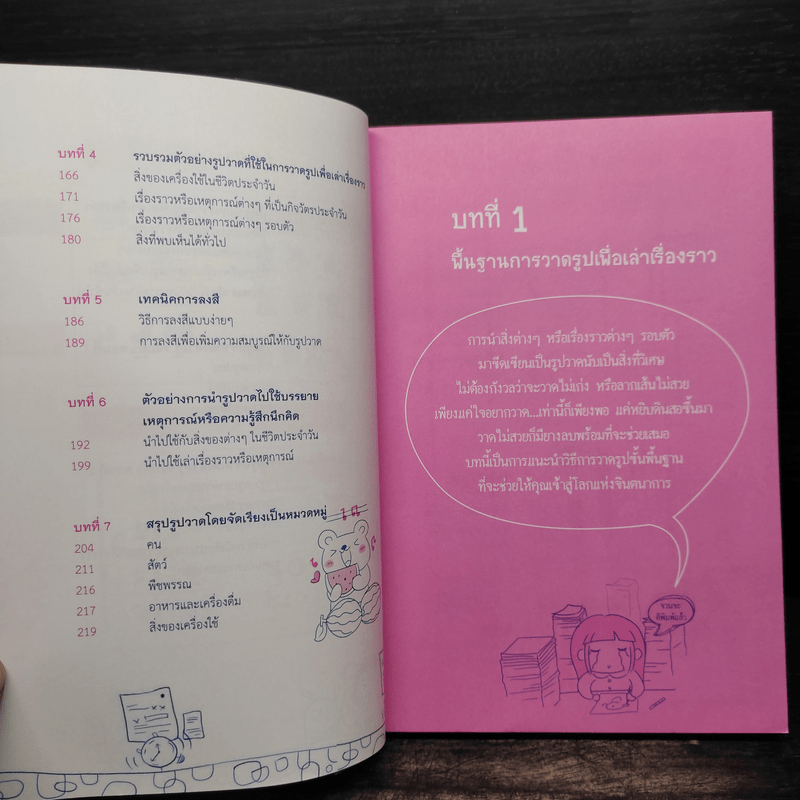 บทที่ 4 รวบรวมตัวอย่างรูปวาดที่ใช้ในการวาดรูปเพื่อเล่าเรื่องราว
166 สิ่งของเครื่องใช้ในชีวิตประจำวัน
171 เรื่องราวหรือเหตุการณ์ต่างๆ ที่เป็นกิจวัตรประจำวัน
176 เรื่องราวหรือเหตุการณ์ต่างๆ รอบตัว
180 สิ่งที่พบเห็นได้ทั่วไป
บทที่ 5 เทคนิคการลงสี
186 วิธีการลงสีแบบง่ายๆ
189 การลงสีเพื่อเพิ่มความสมบูรณ์ให้กับรูปวาด
บทที่ 6 ตัวอย่างการนำรูปวาดไปใช้บรรยาย
เหตุการณ์หรือความรู้สึกนึกคิด
192 นำไปใช้กับสิ่งของต่างๆ ในชีวิตประจำวัน
199 นำไปใช้เล่าเรื่องราวหรือเหตุการณ์
บทที่ 7 สรุปรูปวาดโดยจัดเรียงเป็นหมวดหมู่
204 คน
211 สัตว์
216 พืชพรรณ
217 อาหารและเครื่องดื่ม
219 สิ่งของเครื่องใช้
บทที่ 1
พื้นฐานการวาดรูปเพื่อเล่าเรื่องราว
การนำสิ่งต่างๆ หรือเรื่องราวต่างๆ รอบตัว
มาขีดเขียนเป็นรูปวาดนับเป็นสิ่งที่วิเศษ
ไม่ต้องกังวลว่าจะวาดไม่เก่ง หรือลากเส้นไม่สวย
เพียงแค่ใจอยากวาด...เท่านี้ก็เพียงพอ แค่หยิบดินสอขึ้นมา
วาดไม่สวยก็มียางลบพร้อมที่จะช่วยเสมอ
บทนี้เป็นการแนะนำวิธีการวาดรูปขั้นพื้นฐาน
ที่จะช่วยให้คุณเข้าสู่โลกแห่งจินตนาการ
จวนจะ
ตีพิมพ์แล้ว